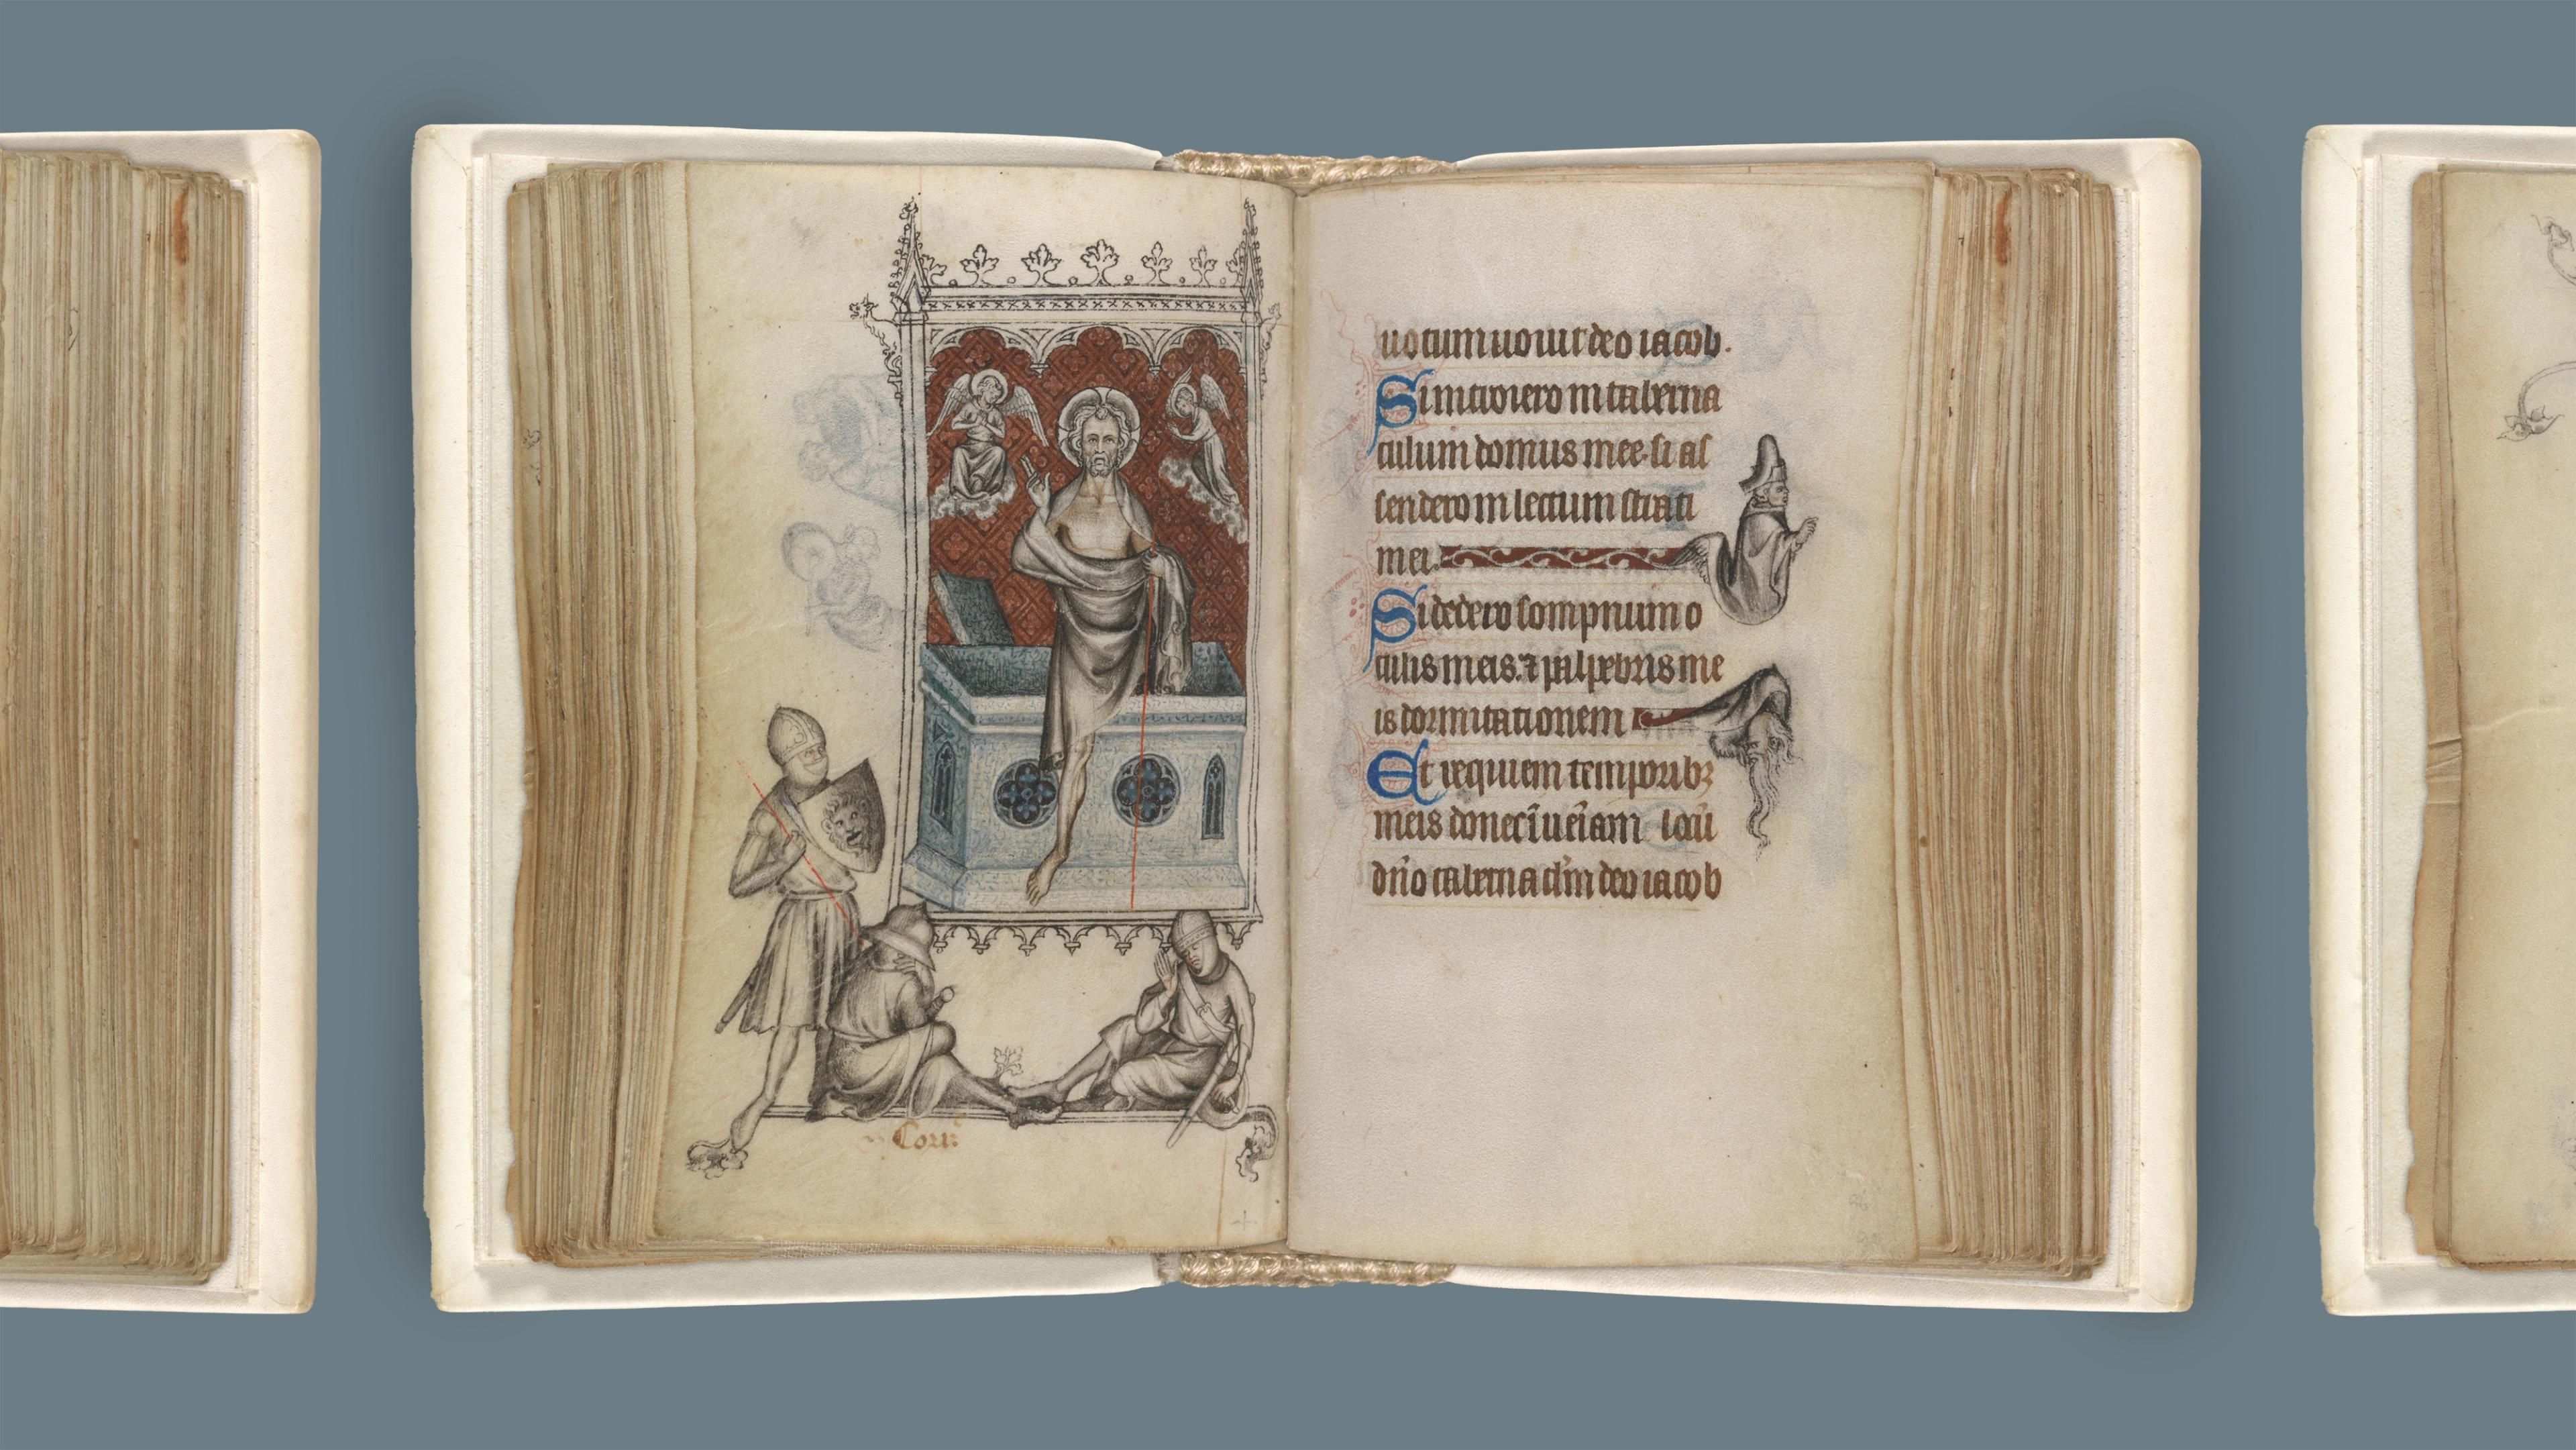 Corr
uotum uouit deo iacob.
Si introiero in taberna
culum domus mee. si as
sendero in lectum strati
mei.
Si dedero sompnum o
culis meis. ⁊ palpebris me
is dormitationem
Et requiem temporibꝫ
meis donec īueīam locū
dn̄o tabernaclm̄ deo iacob